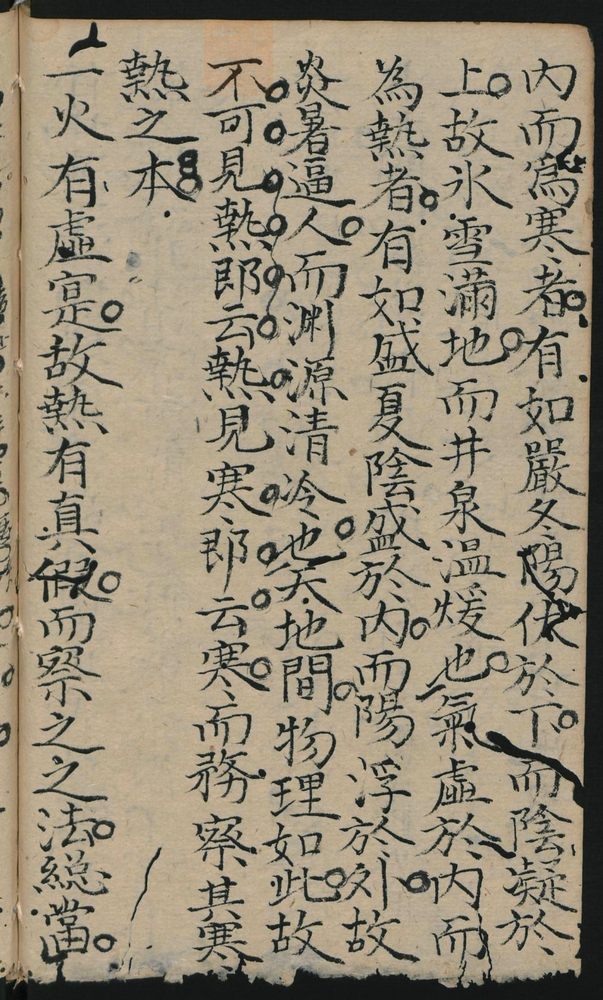 内而爲寒者有如嚴冬陽伏於下而陰凝於
上故氷雪滿地而井泉温煖也氣虛於内而
為熱者有如盛夏陰盛於内而陽浮於外故
炎暑逼人而渊源清冷也天地間物理如此故
不可見熱即云熱見寒即云寒而務察其寒
熱之本
一火有虛寔故熱有真假而察之之法総當